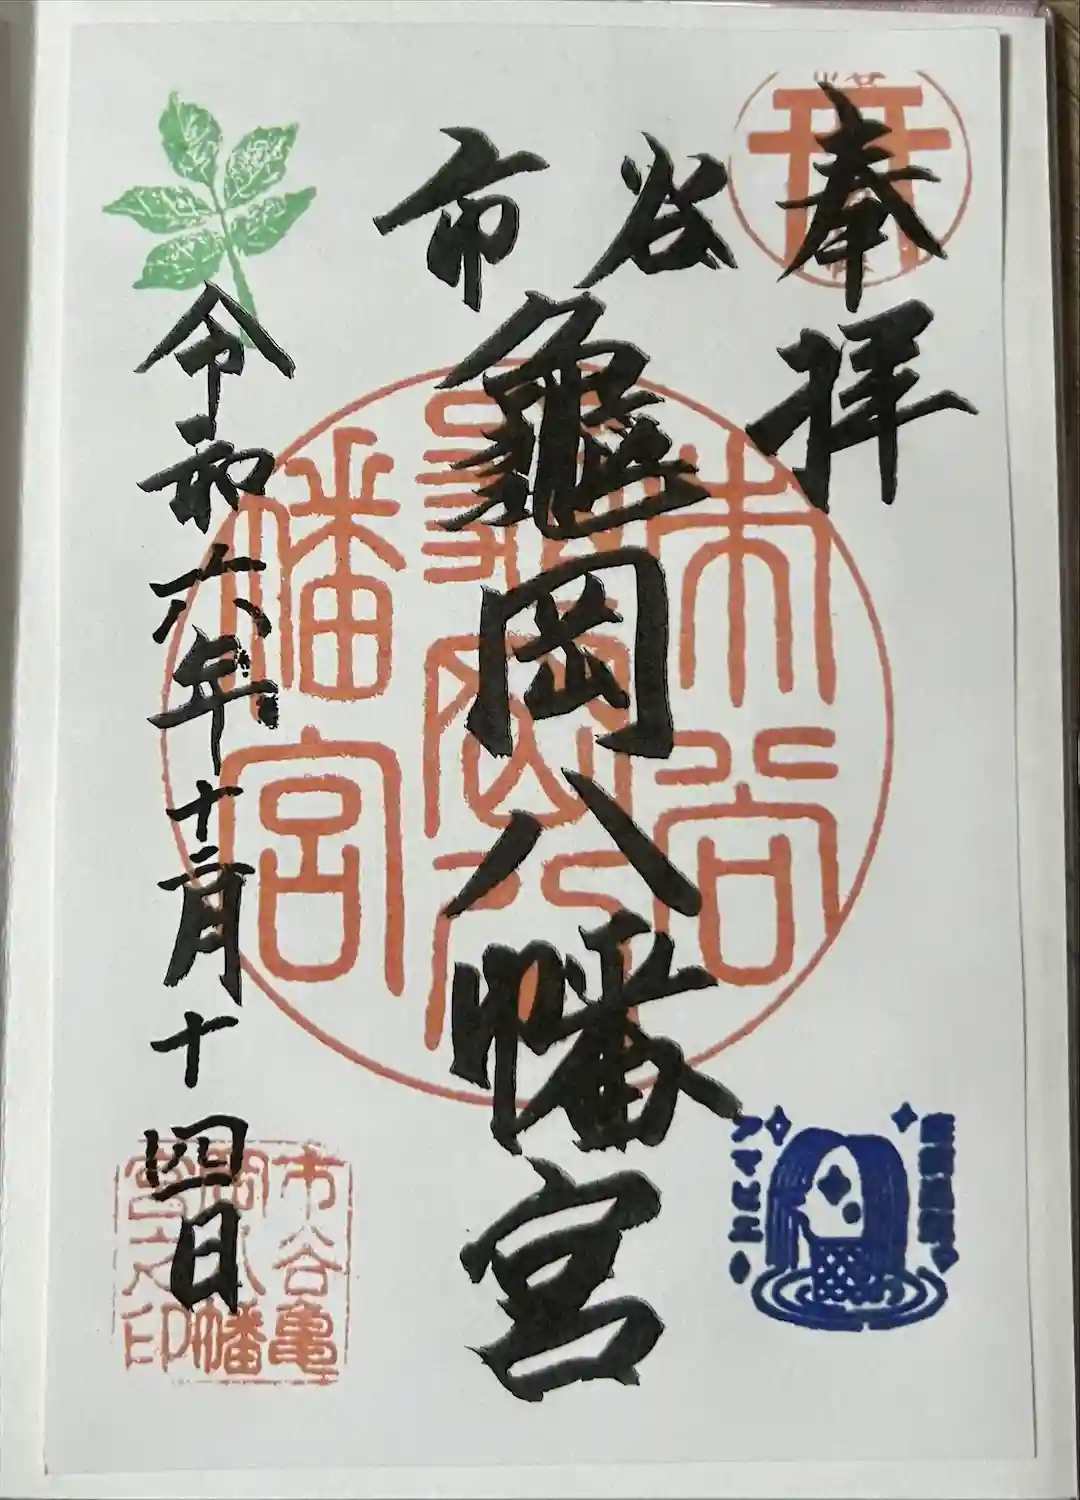 奉拝
市谷
龜岡八幡宮
令和六年十二月十四日
市谷
龜岡八
幡宮
市谷亀
岡八幡
宮之印
アマビエ